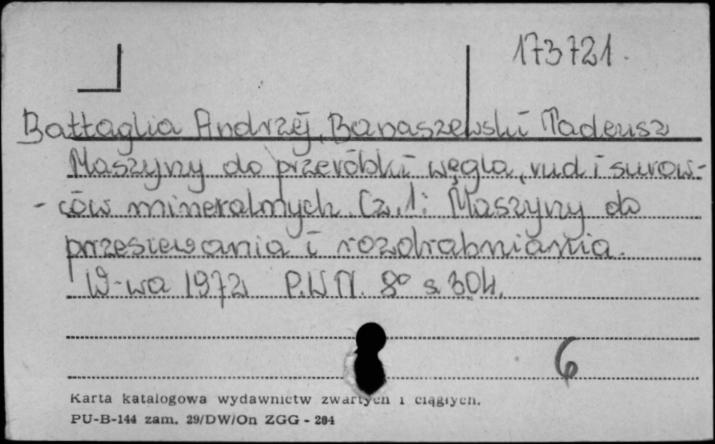 173721.
Battaglia Andrzej, Banaszewski Tadeusz
Maszyny do przeróbki węgla, rud i surow-
- ców mineralnych. Cz. 1: Maszyny do
przesiewania i rozdrabniania.
W-wa 1972 P.W.N. 8° s. 304.
6
Karta katalogowa wydawnictw zwartych i ciągłych.
PU-B-144 zam. 29/DW/On ZGG - 284